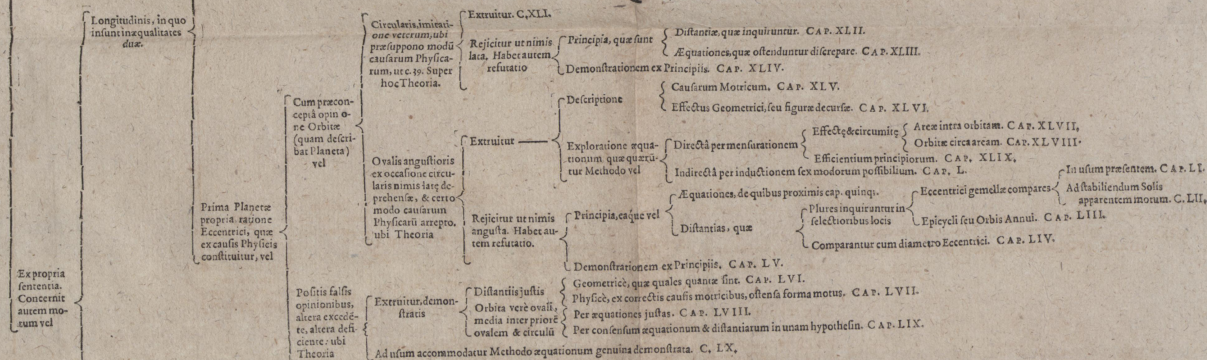 Longitudinis, in quo
insunt inæqualitates
duæ.
Ex propria
sententia.
Concernit
autem mo-
tum vel
Prima Planetæ
propria ratione
Eccentrici, quæ
ex causis Physicis
constituitur, vel
Cum præcon-
ceptâ opinio-
ne Orbitæ
(quam descri-
bat Planeta)
vel
Circularis, imitati-
one veterum, ubi
præsuppono modũ
causarum Physica-
rum, ut c. 39. Super
hoc Theoria.
Extruitur. C, XLI.
Rejicitur ut nimis
lata. Habet autem
refutatio
Principia, quæ sunt
Distantiæ, quæ inquiruntur. CAP. XLII.
Æquationes, quæ ostenduntur discrepare. CAP. XLIII.
Demonstrationem ex Principiis. CAP. XLIV.
Ovalis angustioris
ex occasione circu-
laris nimis latę de-
prehensæ, & certo
modo causarum
Physicarũ arrepto,
ubi Theoria
Extruitur
Descriptione
Causarum Motricum. CAP. XLV.
Effectus Geometrici, seu figuræ decursæ. CAP. XLVI.
Exploratione æqua-
tionum quæ quærũ-
tur Methodo vel
Directâ per mensurationem
Effectę & circumitę
Areæ intra orbitam. CAP. XLVII.
Orbitæ circa aream. CAP. XLVIII.
Efficientium principiorum. CAP. XLIX.
Indirectâ per inductionem sex modorum possibilium. CAP. L.
Rejicitur ut nimis
angusta. Habet au-
tem refutatio.
Principia, eaque vel
Æquationes, de quibus proximis cap. quinqꝫ.
Distantias, quæ
Plures inquiruntur in
selectioribus locis
Eccentrici gemellæ compares
In usum præsentem. CAP. LI.
Ad stabiliendum Solis
apparentem motum. C. LII,
Epicycli seu Orbis Annui. CAP. LIII.
Comparantur cum diametro Eccentrici. CAP. LIV.
Demonstrationem ex Principiis. CAP. LV.
Positis falsis
opinionibus,
altera excedẽ-
te, altera defi-
ciente: ubi
Theoria
Extruitur, demon-
stratis
Distantiis justis
Geometricè, quæ quales quantæ sint. CAP. LVI.
Physicè, ex correctis causis motricibus, ostensa forma motus. CAP. LVII.
Orbita verè ovali,
media inter priorẽ
ovalem & circulũ
Per æquationes justas. CAP. LVIII.
Per consensum æquationum & distantiarum in unam hypothesin. CAP. LIX.
Ad usum accommodatur Methodo æquationum genuina demonstrata. C, LX,